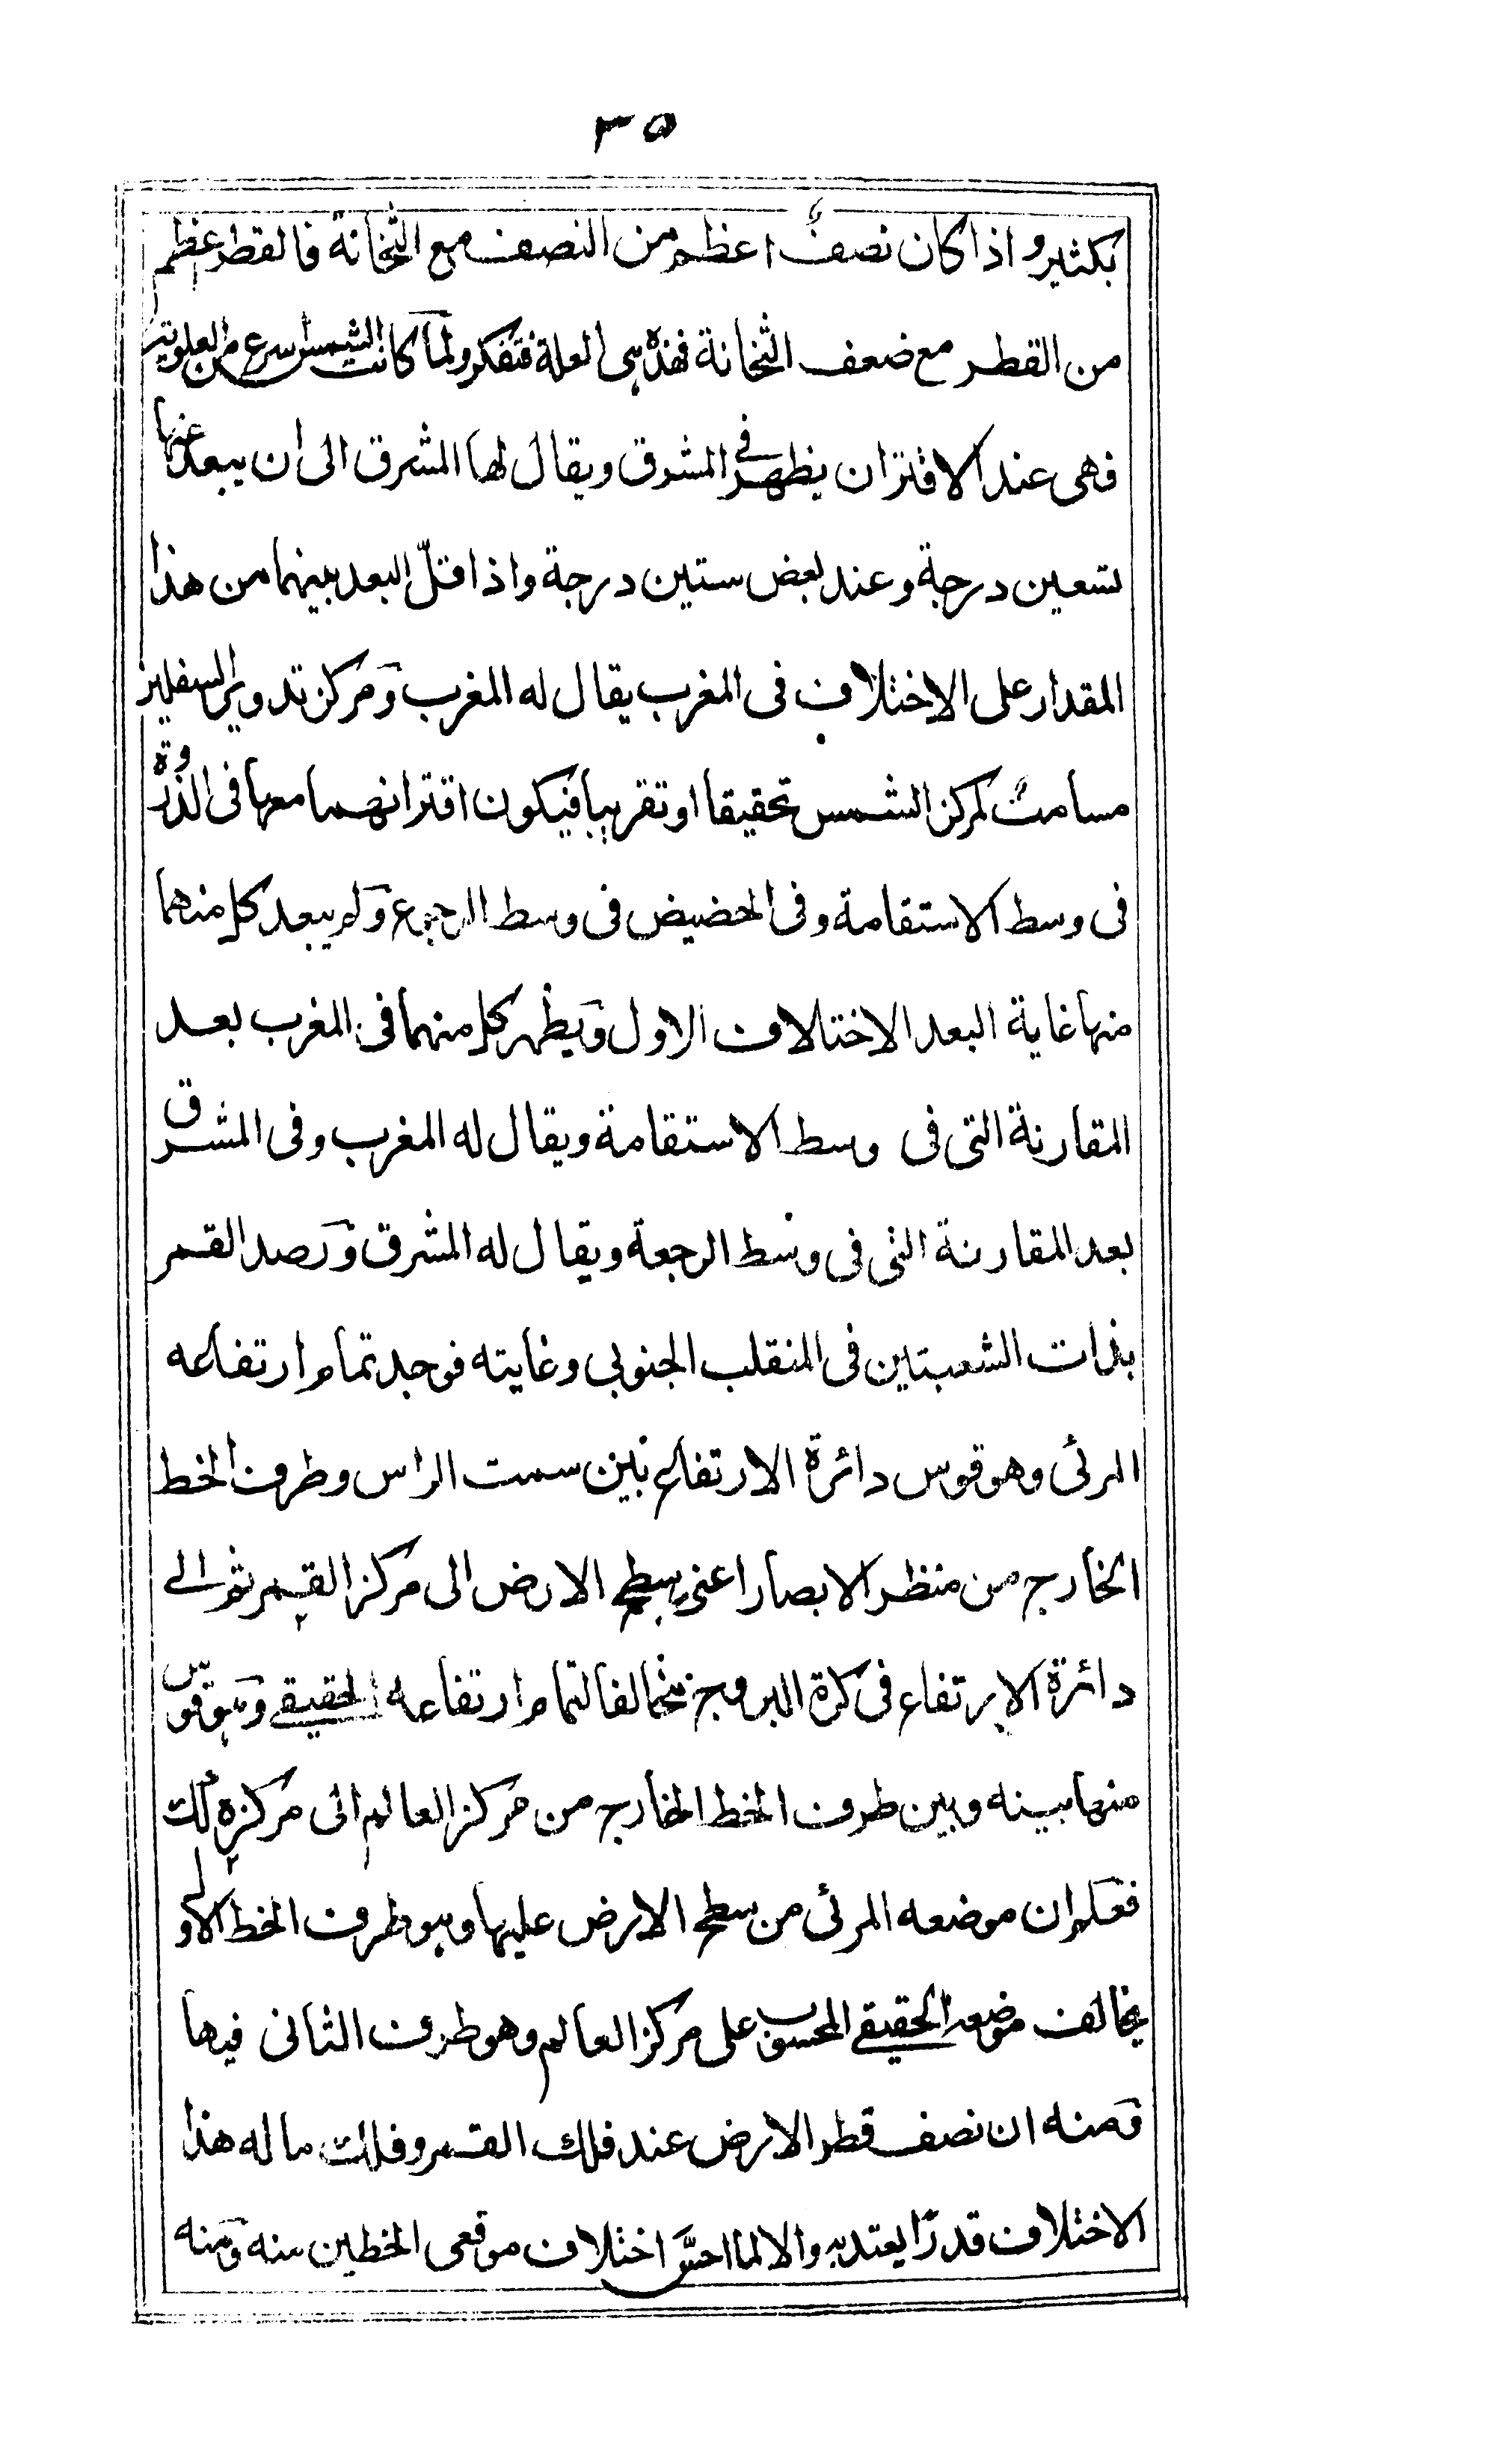 ٣٥
بكثير واذا كان نصفٌ اعظم من النصف مع الثخانة فالقطر اعظم
من القطر مع ضعف الثخانة فهذه هى العلة فتفكر ولما كانت الشمس اسرع من العلوية
فهى عند الاقتران يظهر فى المشرق ويقال لها المشرق الى ان يبعد عنها
تسعين درجة وعند بعض ستين درجة واذا قلّ البعد بينهما من هذا
المقدار على الاختلاف فى المغرب يقال له المغرب ومركز تدوير السفليين
مسامت لمركز الشمس تحقيقا او تقريبا فيكون اقترانهما معها فى الذروة
فى وسط الاستقامة وفى الحضيض فى وسط الرجوع ولم يبعد كل منهما
منها غاية البعد الاختلاف الاول ويظهر كل منهما فى المغرب بعد
المقارنة التى فى وسط الاستقامة ويقال له المغرب وفى المشرق
بعد المقارنة التى فى وسط الرجعة ويقال له المشرق ورصد القمر
بذات الشعبتين فى المنقلب الجنوبى وغايته فوجد تمام ارتفاعه
المرئى وهو قوس دائرة الارتفاع بين سمت الراس وطرف الخط
الخارج من منظر الابصار اعنى سطح الارض الى مركز القمر ثم الى
دائرة الارتفاع فى كرة البروج مخالفا لتمام ارتفاعه الحقيقى وهو قوس
منها بينه وبين طرف الخط الخارج من مركز العالم الى مركزه
فعلم ان موضعه المرئى من سطح الارض عليها وهو طرف الخط الاول
يخالف موضعه الحقيقى المحسوب على مركز العالم وهو طرف الثانى فيها
ومنه ان نصف قطر الارض عند فلك القمر وفلك ما له هذا
الاختلاف قدرًا يعتد به والا لما احسّ اختلاف موقعى الخطين منه ومنه